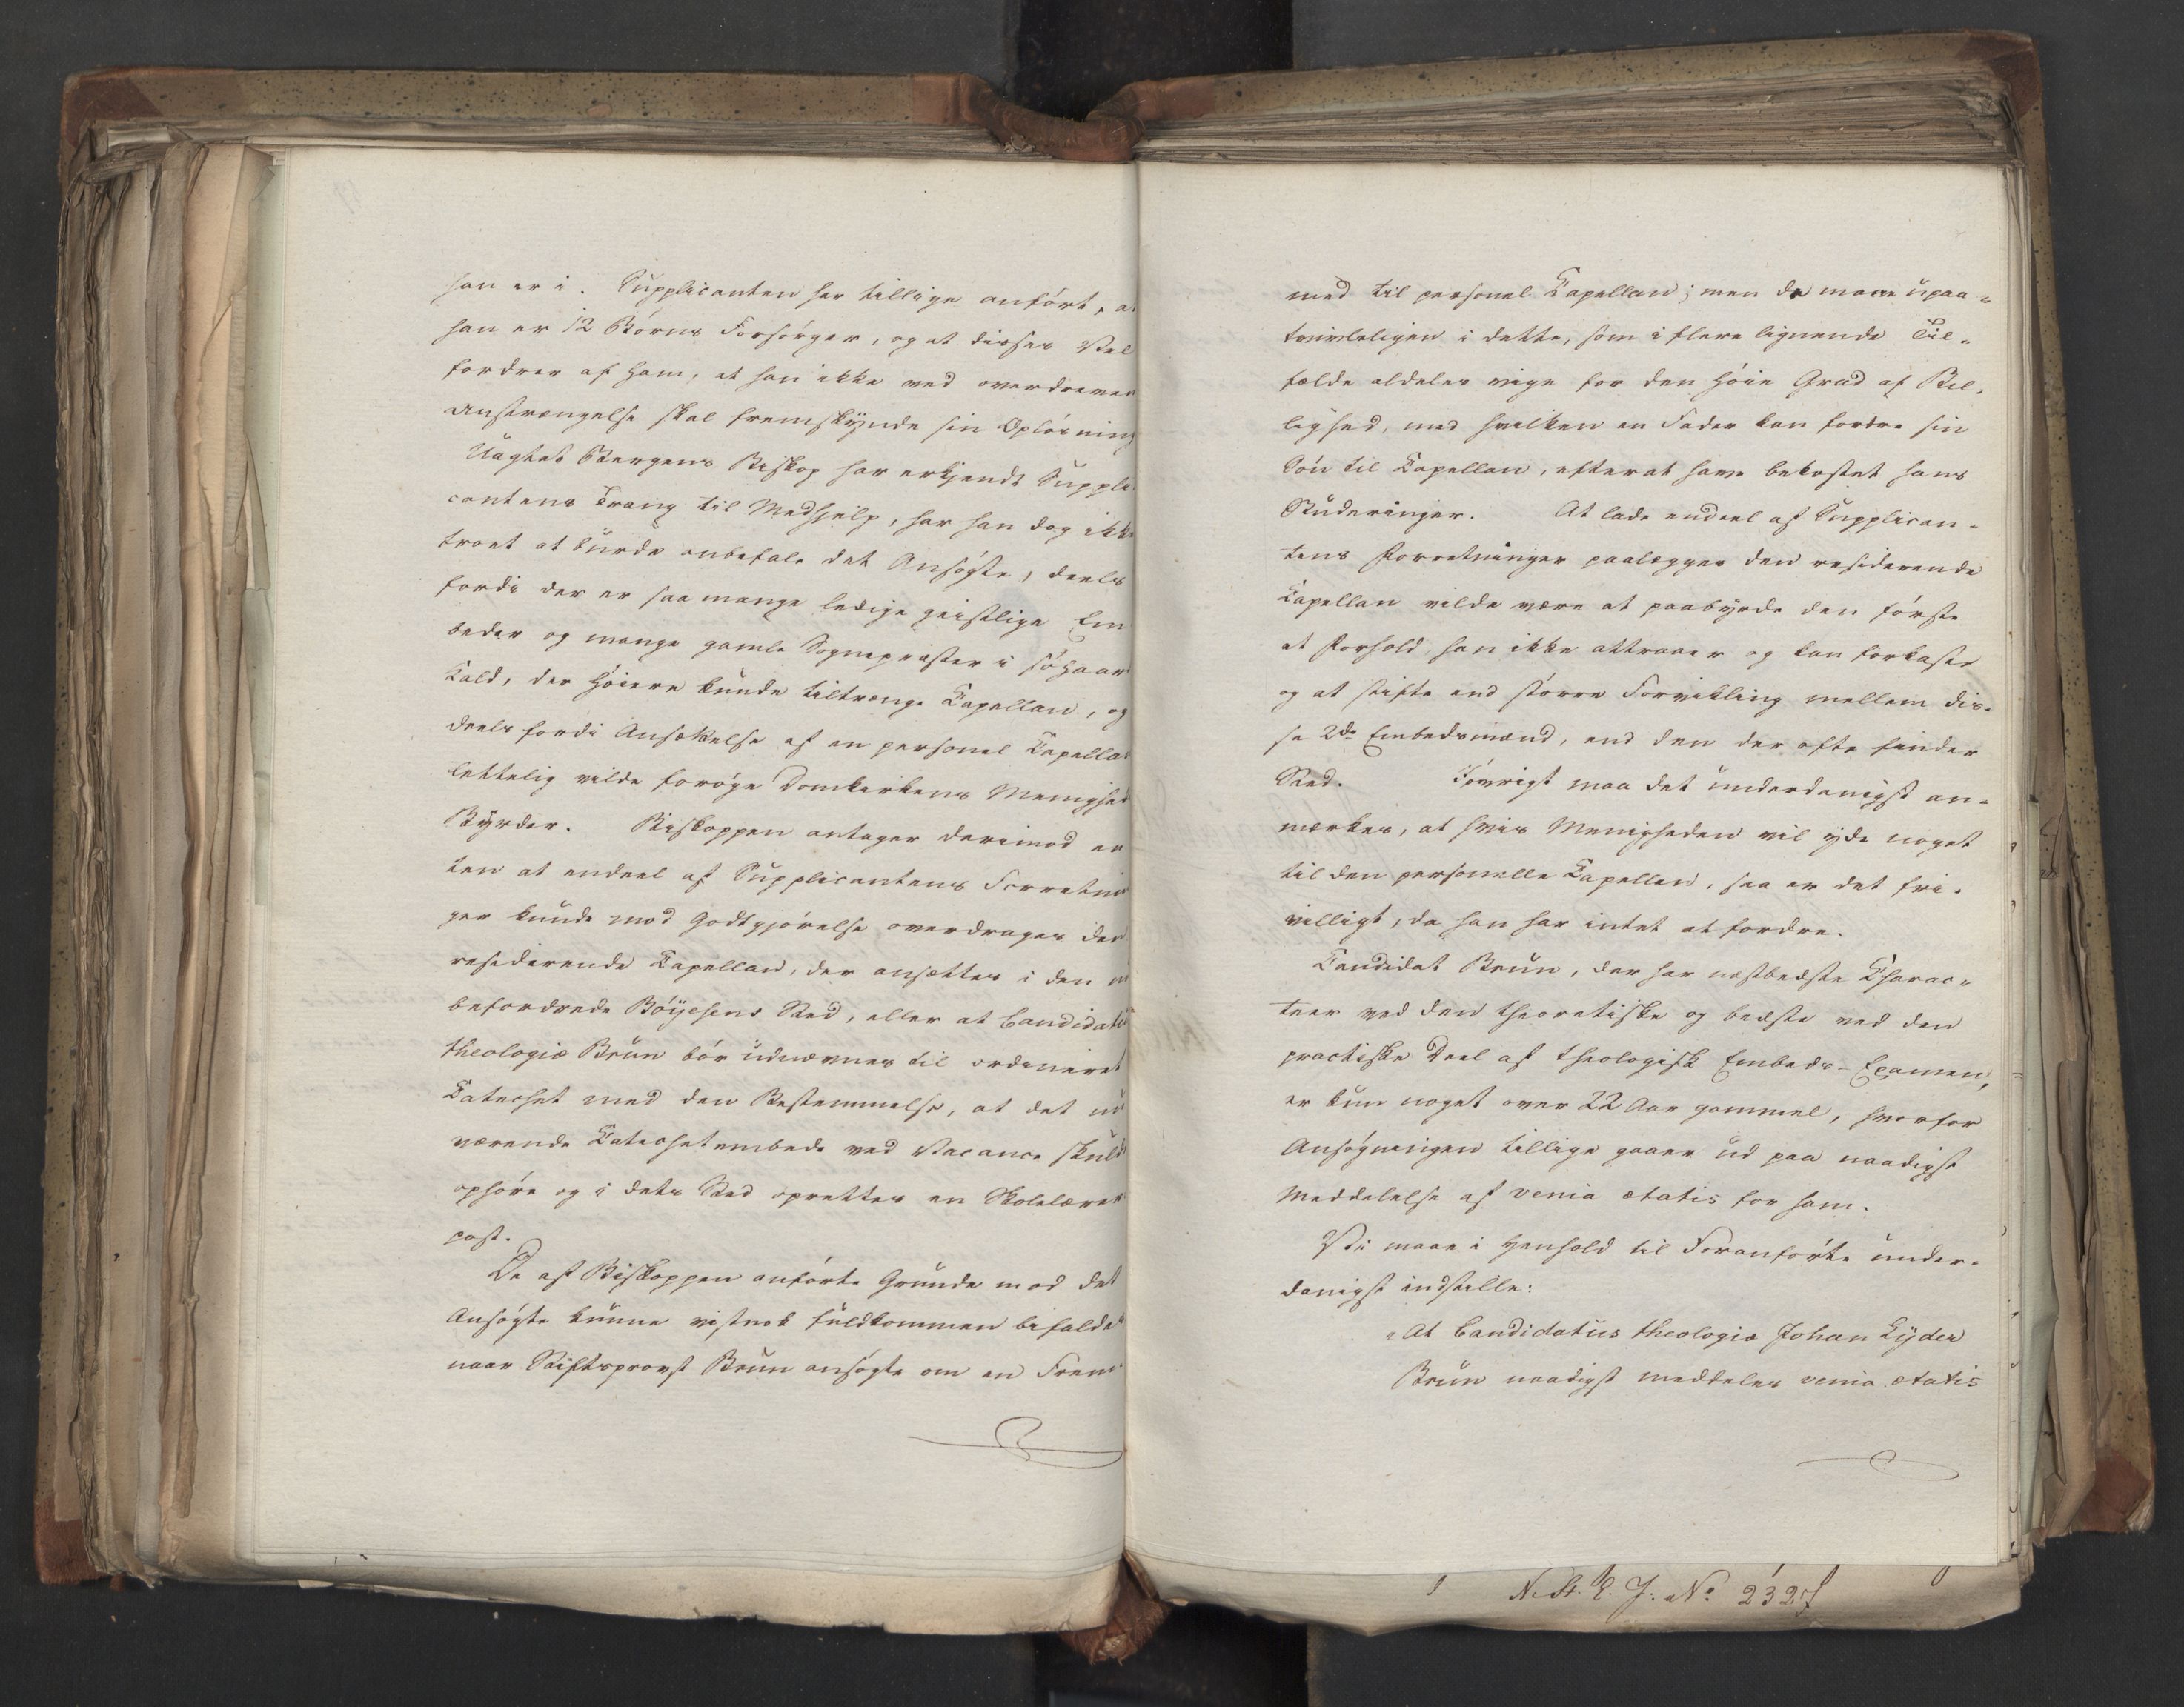 han er i. Supplicanten har tillige anført, at
han er 12 Børns Forsørger, og at disses Vel
fordrer af ham, at han ikke ved overdreven
Anstrængelse skal fremskynde sin Opløsning
Uagtet Bergens Biskop har erkjendt Suppli
cantens Trang til Medhjelp, har han dog ikke
troet at burde anbefale det Ansøgte, deels
fordi der er saa mange ledige geistlige Em
beder og mange gamle Sognepræster i
Kald, der høiere kunde tiltrænge Capellan, og
deels fordi Ansættelse af en personel Capellan
lettelig vilde forøge Domkirkens Menighed
Byrder. Biskoppen antager derimod en
ten at endeel af Supplicantens Forretnin
ger kunde mod Godtgjørelse overdrages den
residerende Capellan, der ansættes i den
befordrede Bøyesens Sted, eller at Candidatus
theologiæ Brun bør udnævnes til ordineret
Catechet med den Bestemmelse, at det nu
værende Catechetembede ved Vacance skulde
ophøre og i dets Sted oprettes en Skolelærer
post.
De af Biskoppen anførte Grunde mod det
Ansøgte kunne vistnok fuldkommen bifaldes
naar Stiftsprovst Brun ansøgte om en Frem
med til personel Capellan; men de maae upaa-
tvivleligen i dette, som i flere lignende Til-
fælde aldeles vige for den høie Grad af Bil-
lighed, med hvilken en Fader kan fordre sin
Søn til Capellan, efterat have bekostet hans
Studeringer. At lade endeel af Supplican-
tens Forretninger paalægges den residerende
Capellan vilde være at paabyrde den første
et Forhold han ikke attraaer og kan forkaste
og at stifte end større Forvikling mellem dis-
se 2de Embedsmænd, end den der ofte finder
Sted. Iøvrigt maa det underdanigst an-
mærkes, at hvis Menigheden vil yde noget
til den personelle Capellan, saa er det fri-
villigt, da han har intet at fordre.
Candidat Brun, der har næstbedste Charac-
teer ved den theoretiske og bedste ved den
practiske Deel af theologisk Embeds-Examen,
er kun noget over 22 Aar gammel, hvorfor
Ansøgningen tillige gaaer ud paa naadigst
Meddelelse af venia ætatis for ham.
Vi maae i Henhold til Foranførte under-
danigst indstille:
"At Candidatus theologiæ Johan Lyder
Brun naadigst meddeles venia ætatis
No 2327